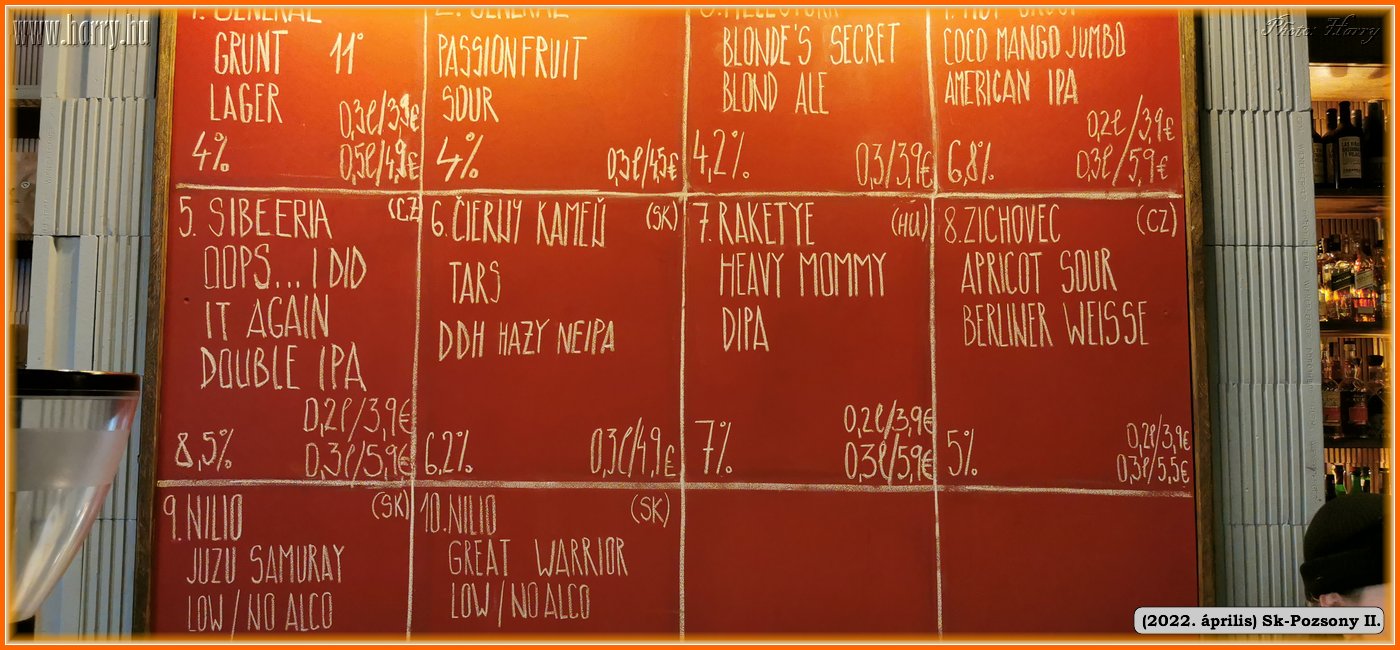 www.harry.hu
Photo: Harry
1. GENERAL
GRUNT 11°
LAGER
0,3l/3,9€
4%
0,5l/4,9€
2. GENERAL
PASSIONFRUIT
SOUR
4%
0,3l/4,5€
BLONDE'S SECRET
BLOND ALE
4,2%
0,3/3,9€
COCO MANGO JUMBO
AMERICAN IPA
0,2l/3,9€
6,8%
0,3l/5,9€
5. SIBEERIA (CZ
OOPS...I DID
IT AGAIN
DOUBLE IPA
0,2l/3,9€
8,5%
0,3l/5,9€
6. ČIERNY KAMEŇ (SK)
TARS
DDH HAZY NEIPA
6,2%
0,3l/4,9€
7. RAKETYE (HU)
HEAVY MOMMY
DIPA
0,2l/3,9€
7%
0,3l/5,9€
8. ZICHOVEC (CZ)
APRICOT SOUR
BERLINER WEISSE
0,2l/3,9€
5%
0,3l/5,5€
9. NILIO (SK)
JUZU SAMURAY
LOW/NO ALCO
10. NILIO (SK)
GREAT WARRIOR
LOW/NO ALCO
(2022. április) Sk-Pozsony II.